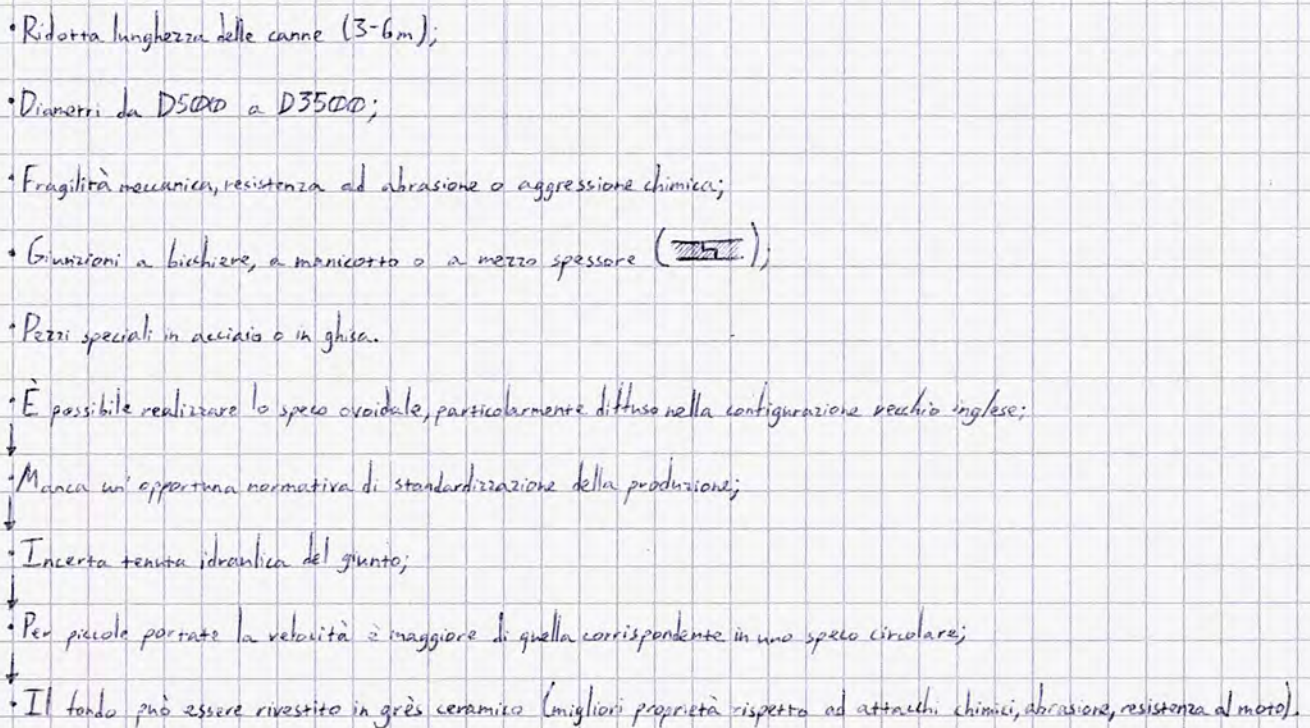 · Ridotta lunghezza delle canne (3-6m);
· Diametri da D500 a D3500;
· Fragilità meccanica, resistenza ad abrasione o aggressione chimica;
· Giunzioni a bicchiere, a manicotto o a mezzo spessore ( );
· Pezzi speciali in acciaio o in ghisa.
· È possibile realizzare lo speco ovoidale, particolarmente diffuso nella configurazione vecchio inglese;
· Manca un'opportuna normativa di standardizzazione della produzione;
· Incerta tenuta idraulica del giunto;
· Per piccole portate la velocità è maggiore di quella corrispondente in uno speco circolare;
· Il fondo può essere rivestito in grès ceramico (migliori proprietà rispetto ad attacchi chimici, abrasione, resistenza al moto).